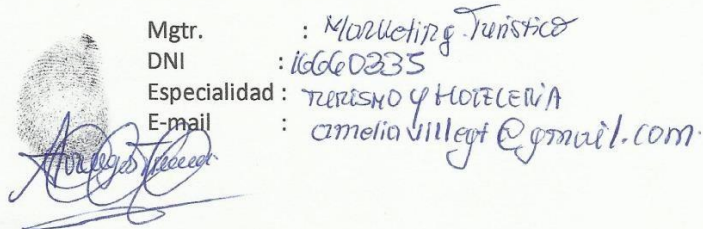 Mgtr. : Marketing Turístico
DNI : 16660335
Especialidad : TURISMO Y HOTELERIA
E-mail : ameliavillegt@gmail.com